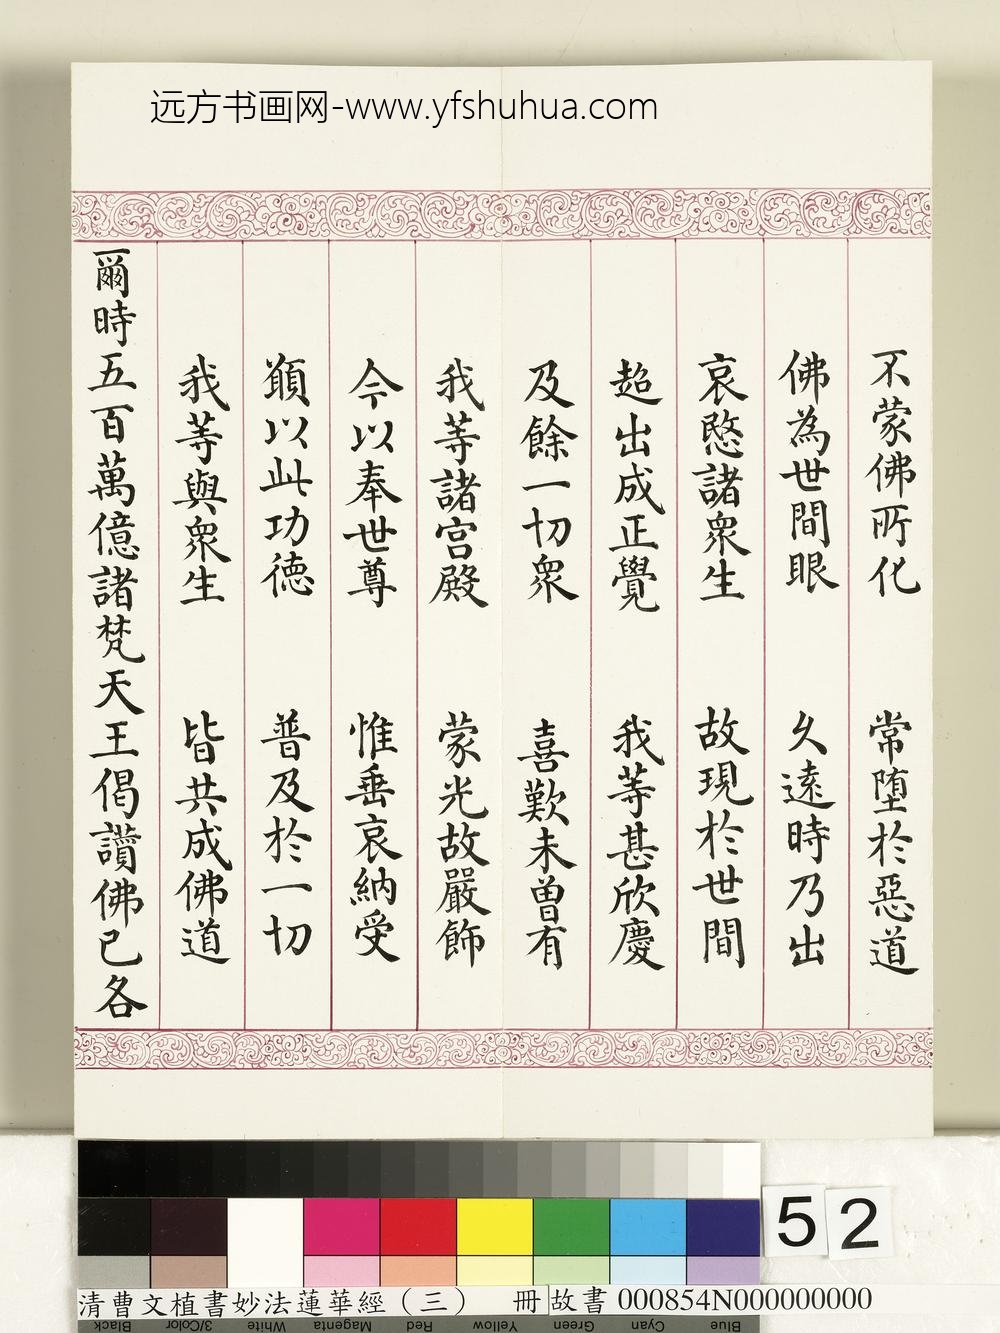 远方书画网-www.yfshuhua.com
不蒙佛所化 常墮於惡道
佛為世間眼 久遠時乃出
哀愍諸衆生 故現於世間
超出成正覺 我等甚欣慶
及餘一切衆 喜歎未曽有
我等諸宫殿 蒙光故嚴飾
今以奉世尊 惟垂哀納受
願以此功德 普及於一切
我等與衆生 皆共成佛道
爾時五百萬億諸梵天王偈讚佛已各
52
清曹文植書妙法蓮華經（三） 冊 故書 000854N000000000
Black 3/Color White Magenta Red Yellow Green Cyan Blue